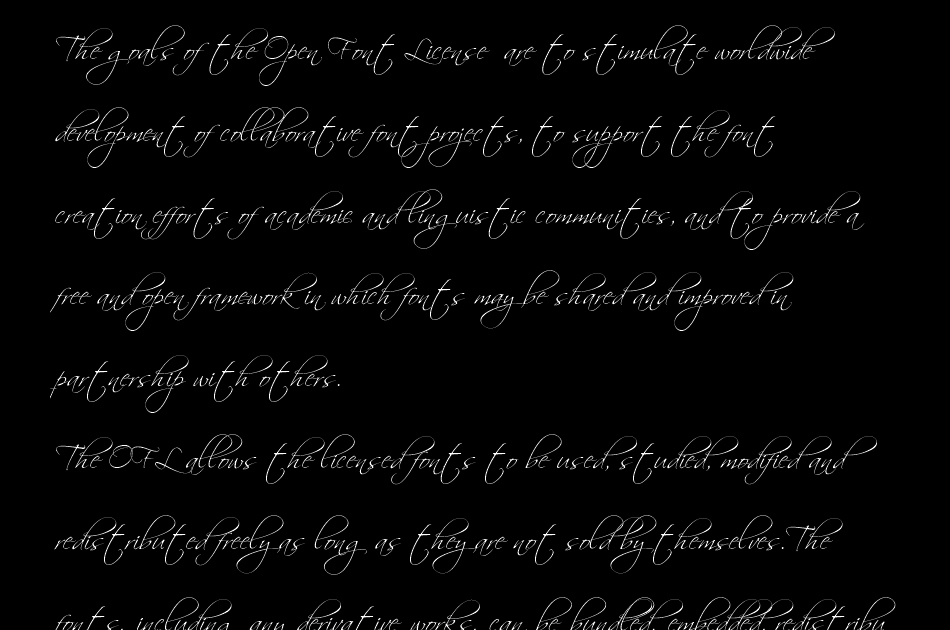 The goals of the Open Font License are to stimulate worldwide
development of collaborative font projects, to support the font
creation efforts of academic and linguistic communities, and to provide a
free and open framework in which fonts may be shared and improved in
partnership with others.
The OFL allows the licensed fonts to be used, studied, modified and
redistributed freely as long as they are not sold by themselves. The
fonts, including any derivative works, can be bundled, embedded, redistribu